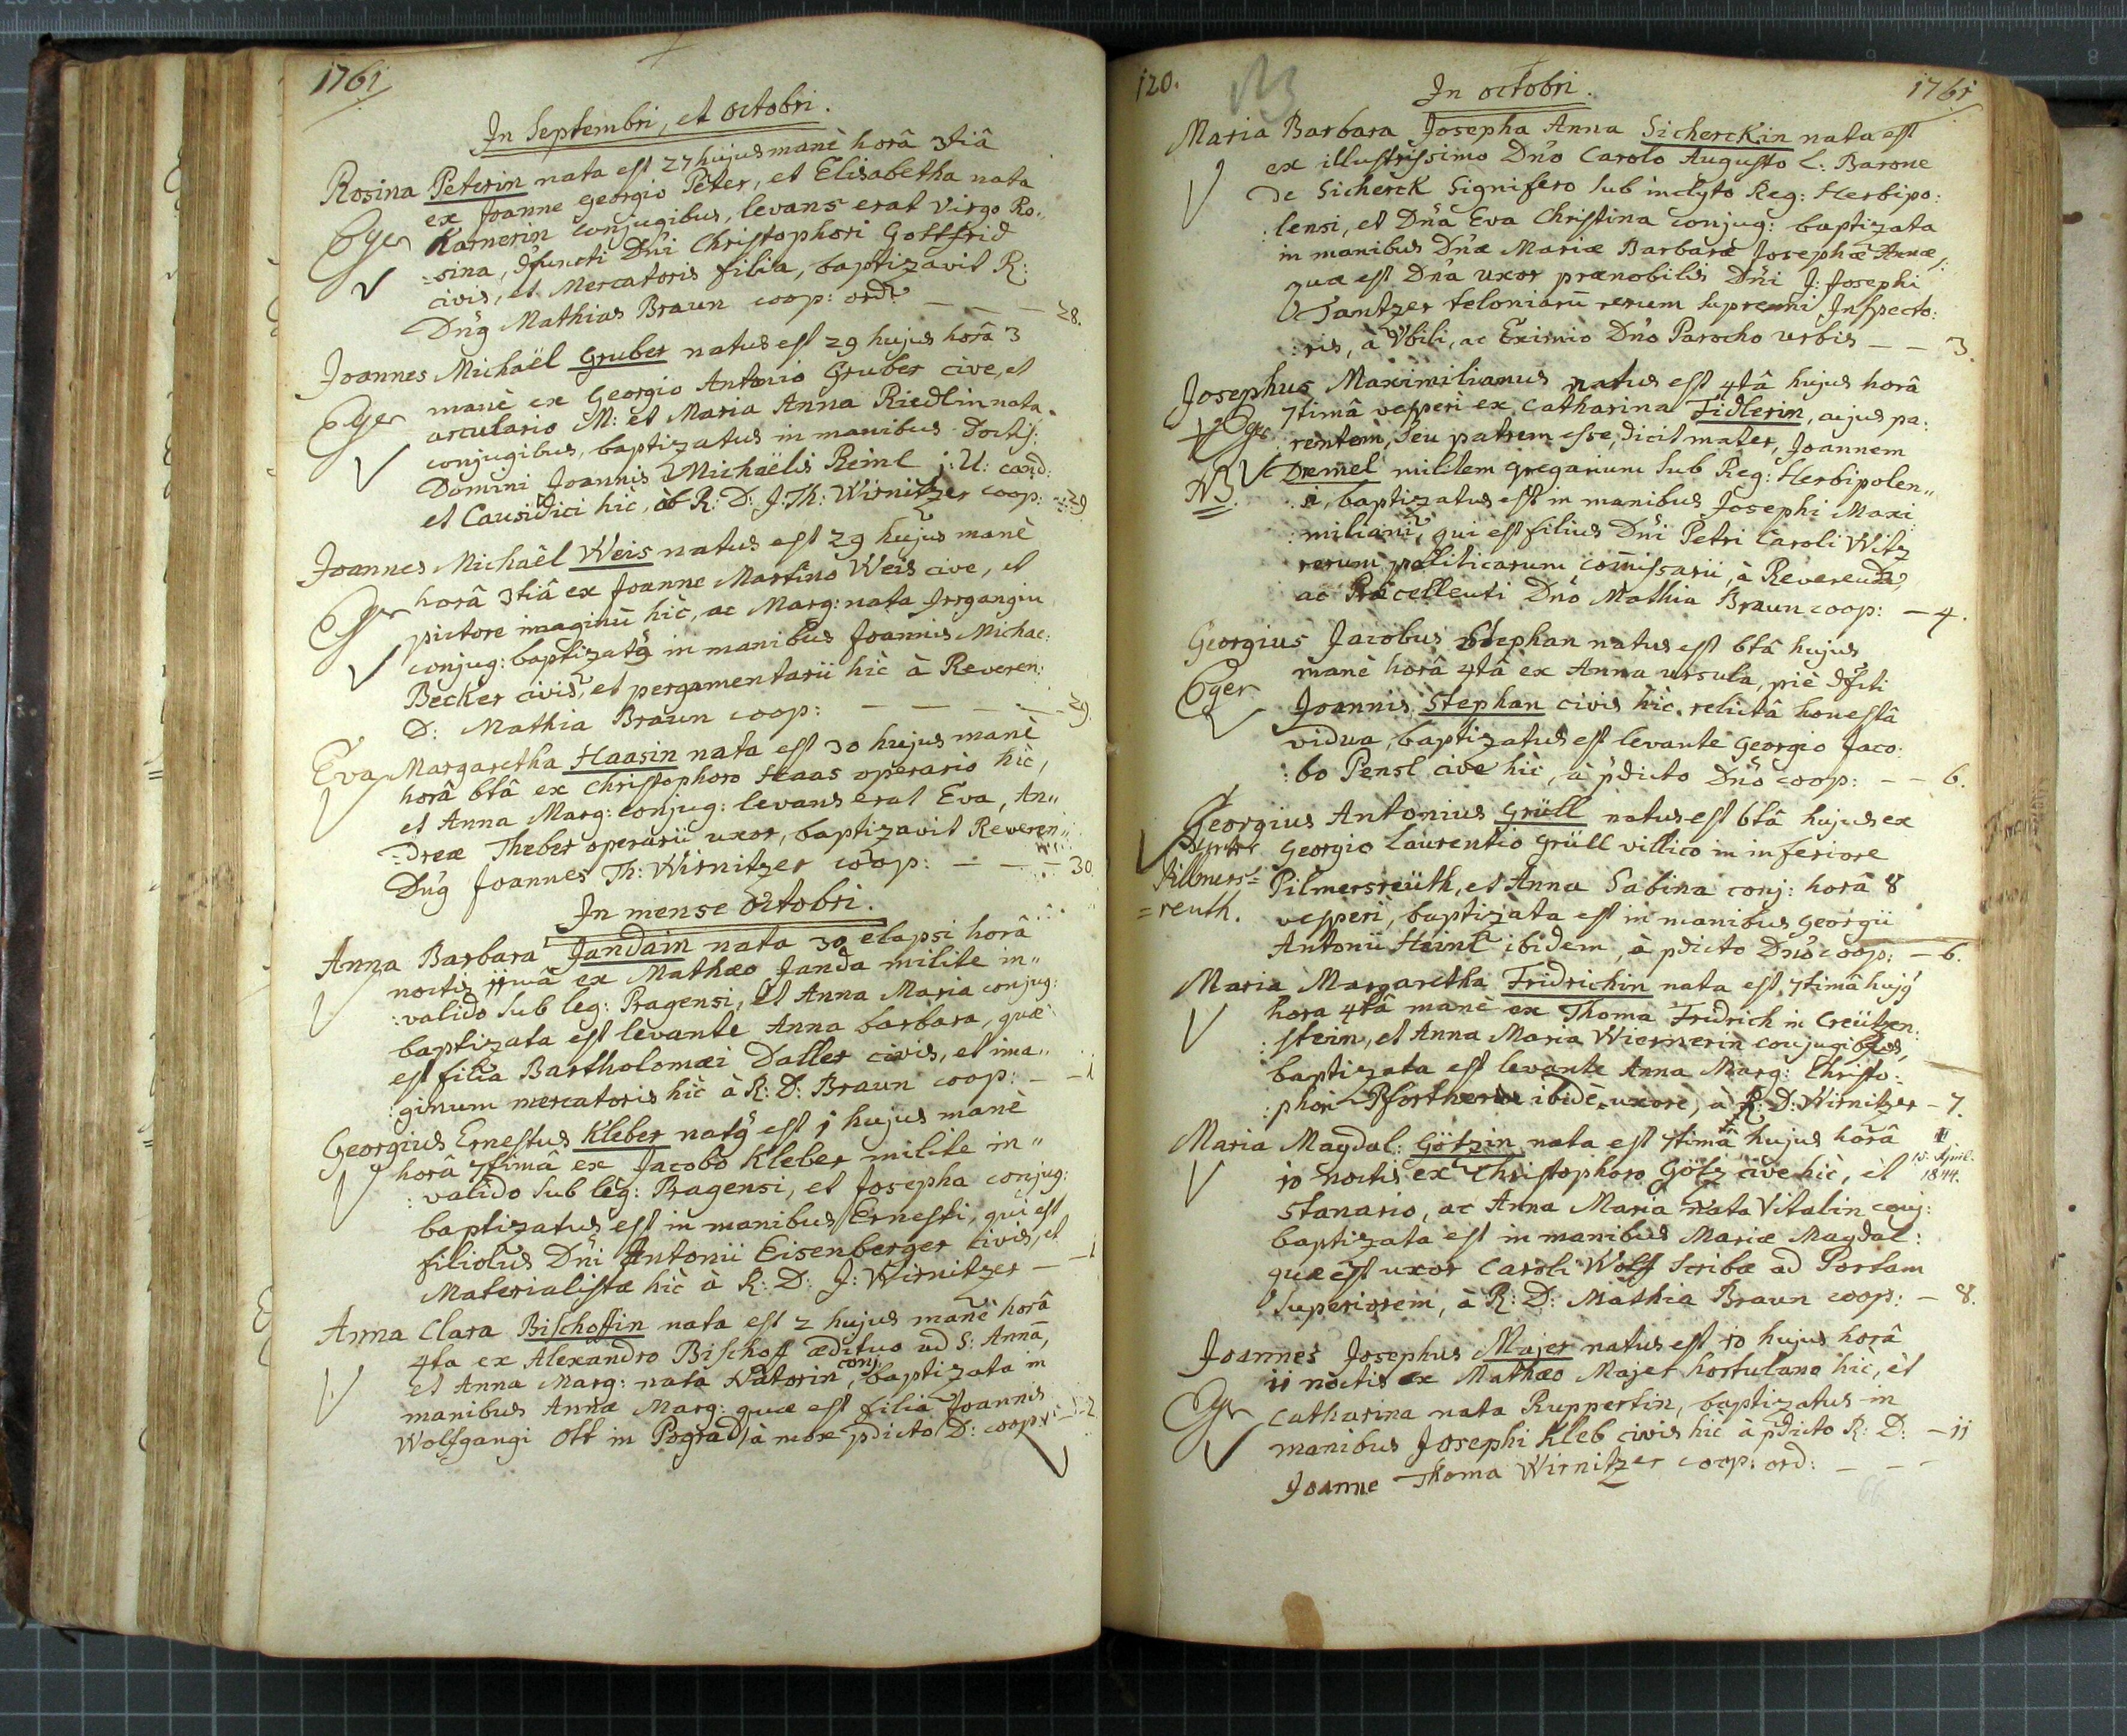 1761
In Septembri, et octobri.
Rosina Peterin nata est 27 hujus manè horâ 3tiâ
ex Joanne Georgio Peter, et Elisabetha nata
Eger Karnerin conjugibus, levans erat Virgo Ro„
=sina, defuncti Dni Christophori Gottfrid
civis, et Mercatoris filia, baptizavit R:
Dng Mathias Braun coop: ord: — — — 28.
Joannes Michaël Gruber natus est 29 hujus horâ 3
Eger manè ex Georgio Antonio Gruber cive, et
arculario M: et Maria Anna Riedlin nata
conjugibus, baptizatus in manibus Doctiss:
Domini Joannis Michaëlis Reinl j: U: cand:
et Causidici hìc, ab R: D: J: Th: Wirnitzer coop: 29
Joannes Michaël Weis natus est 29 hujus manè
Eger horâ 3tiâ ex Joanne Martino Weis cive, et
pictore imaginū hìc, ac Marg: nata Irrgangin
conjug: baptizatg in manibus Joannis Michae:
Becker civis, et pergamentarii hìc à Reveren:
D: Mathia Braun coop: — — — — 29.
Eva Margaretha Haasin nata est 30 hujus manè
horâ 6tâ ex Christophoro Haas operario hìc,
et Anna Marg: conjug: levans erat Eva, An„
=dreæ Theber operarii uxor, baptizavit Reveren„
Dng Joannes Th: Wirnitzer coop: — — — 30.
In mense Octobri.
Anna Barbara Jandain nata 30 elapsi horâ
noctis ex Mathæo Janda milite in„
:valido sub leg: Pragensi, et Anna Maria conjug:
baptizata est levante Anna barbara, quæ
est filia Bartholomæi Daller civis, et ima„
:ginum mercatoris hìc à R: D: Braun coop: — 1
Georgius Ernestus Kleber natg est 1 hujus manè
horâ 7timâ ex Jacobo Kleber milite in„
:valido sub leg: Pragensi, et Josepha conjug:
baptizatus est in manibus Ernesti, qui est
filiolus Dni Antonii Eisenberger civis, et
Materialistæ hìc à R: D: J: Wirnitzer — 1
Anna Clara Bischoffin nata est 2 hujus manè horâ
4ta ex Alexandro Bischoff ædituo ad S: Annā,
et Anna Marg: nata conj baptizata in
manibus Annæ Marg: quæ est filia Joannis
Wolfgangi Ott in Pograd, à mox pdicto D: coop: — 2
120. NB In octobri. 1761
Maria Barbara Josepha Anna Sicherckin nata est
ex illustrissimo Dno Carolo Augusto L: Barone
de Sicherck Signifero sub inclyto Reg: Herbipo:
:lensi, et Dna Eva Christina conjug: baptizata
in manibus Dnæ Mariæ Barbaræ Josephæ Annæ,
quæ est Dna uxor prænobilis Dni J: Josephi
Tantzer teloniarū rerum supremi Inspecto:
:ris, à Vbili, ac Eximio Dno Parocho urbis — — 3.
Josephus Maximilianus natus est 4tâ hujus horâ
Eger 7timâ vesperi ex Catharina Fidlerin, cujus pa:
rentem, seu patrem esse, dicit mater, Joannem
NB Dremel militem gregarium sub Reg: Herbipolen„
:si, baptizatus est in manibus Josephi Maxi
:miliani, qui est filius Dni Petri Caroli Witz
rerum politicarum comissarii, à Reverendo,
ac Præcellenti Dno Mathia Braun coop: — 4.
Georgius Jacobus Stephan natus est 6tâ hujus
Eger manè horâ 4tâ ex Anna ursula, piè dfcti
Joannis Stephan civis hìc relictâ honestâ
vidua, baptizatus est levante Georgio Jaco:
:bo Pensl cive hìc, à pdicto Dno coop: — — 6.
Georgius Antonius Grüll natus est 6tâ hujus ex
Georgio Laurentio Grüll villico in inferiore
Pillmers=
=reuth. Pilmersreüth, et Anna Sabina conj: horâ 8
vesperi, baptizata est in manibus Georgii
Antonii Heinl ibidem, à pdicto Dno coop: — 6.
Maria Margaretha Fridrichin nata est 7timâ hujg
hora 4tâ manè ex Thoma Fridrich in Creützen:
:stein, et Anna Maria Wiernerin conjugibus,
baptizata est levante Anna Marg: Christo:
:phori ibidē uxore, à R: D: Wirnitzer — 7.
Maria Magdal: Götzin nata est 7timâ hujus horâ
10 noctis ex Christophoro Götz cive hìc, et
15. April.
1844.
stanario, ac Anna Maria nata Vitalin conj:
baptizata est in manibus Mariæ Magdal:
quæ est uxor Caroli Wolf Scribæ ad Portam
Superiorem, à R: D: Mathia Braun coop: — 8.
Joannes Josephus Majer natus est 10 hujus horâ
11 noctis ex Mathæo Majer hortulano hìc, et
Eger Catharina nata Ruppertin, baptizatus in
manibus Josephi Kleb civis hìc à pdicto R: D: — 11
Joanne Thoma Wirnitzer coop: ord: — — —